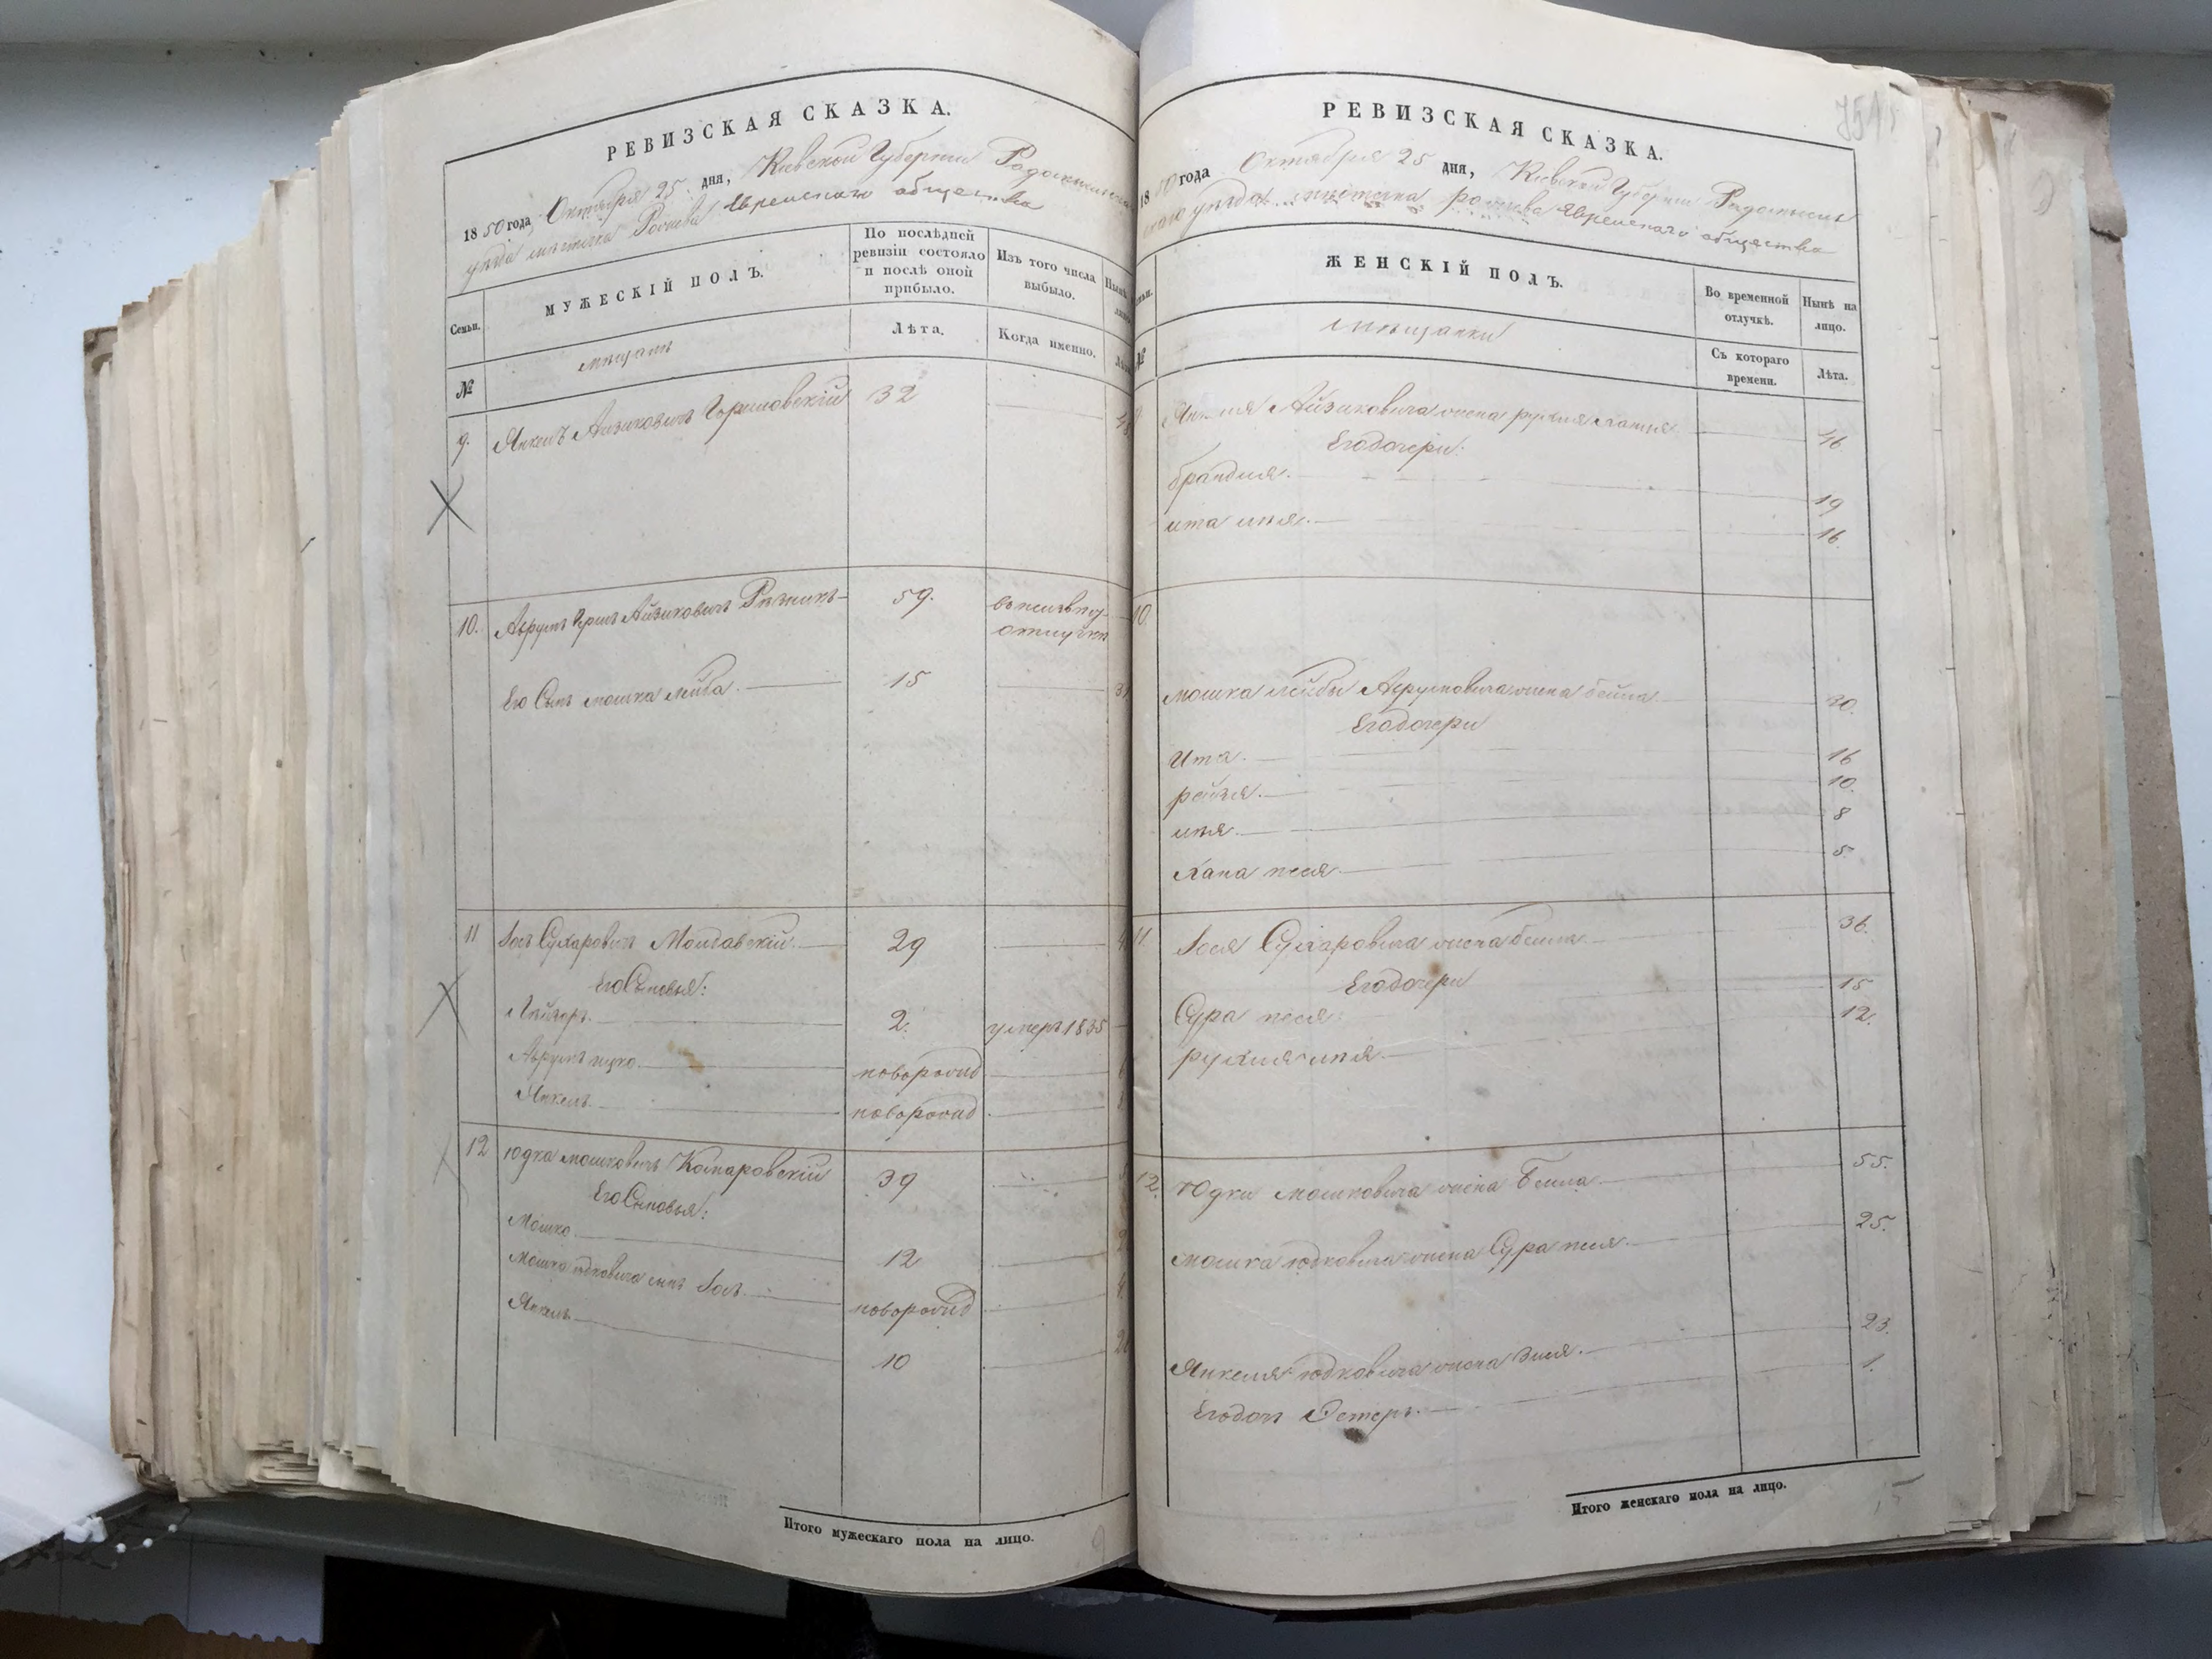 РЕВИЗСКАЯ СКАЗКА.
1850 года, Октября 25 дня, Киевской Губернии Радомысльска
уезда местечка Рожева Еврейскаго общества
Семьи.
МУЖЕСКІЙ ПОЛЪ.
По послѣдней
ревизіи состояло
и послѣ оной
прибыло.
Изъ того числа
выбыло.
Нынѣ
лицо
№
мещане
Лѣта.
Когда именно.
Лѣт
9. Янкель Айзиковичъ Горшовскій 32
10. Аврумъ Герш Айзиковичъ Резникъ 59.
отлучке
Его Сынъ мошка лейба. 15 3
11 Іось Сухаровичъ Молдавскій. 29 4
Его Сыновья:
Лейзоръ. 2. умеръ 1835
Аврумъ ицко. новорожд 6
Янкель. новорожд
12 юдка мошковичъ Комаровскій 39
Его Сыновья:
Мошко. 12 2
Мошко юдковича сынъ Іось. новорожд 4
Янкель. 10 2
Итого мужескаго пола на лицо.
РЕВИЗСКАЯ СКАЗКА.
1850 года Октября 25 дня, Киевской Губерніи Радомысль
скаго уезда местечка рожева Еврейскаго общества
751
емьи.
ЖЕНСКІЙ ПОЛЪ.
Во временной
отлучкѣ.
Нынѣ на
лицо.
№
мещанки
Съ котораго
времени.
Лѣта.
Янкеля Айзиковича жена рухля 46.
Его дочери:
брандля. 19
ита 16.
10.
мошка лейбы Аврумовича жена бейла 30.
Его дочери
Ита. 16
рейзя. 10.
8
Хана песя 5
11. Іося Сухаровича жена бейла. 36.
Его дочери 15
Сура песя. 12.
рухля
12. Юдки мошковича жена Бейла. 55.
мошка юдковича жена Сура песя. 25.
Янкеля юдковича жена 23.
Его дочь Эстеръ. 1.
Итого женскаго пола на лицо.